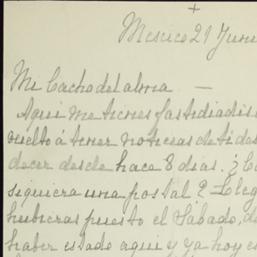 +
Mexico 21 Juni
Mi Cacho del alma —
Aqui me tienes fastidiadis
vuelto á tener noticias de ti des
decer desde hace 8 dias. ¿ Co
siquiera una postal? Lleg
hubieras puesto el Sábado, de
haber estado aqui y ya hoy es